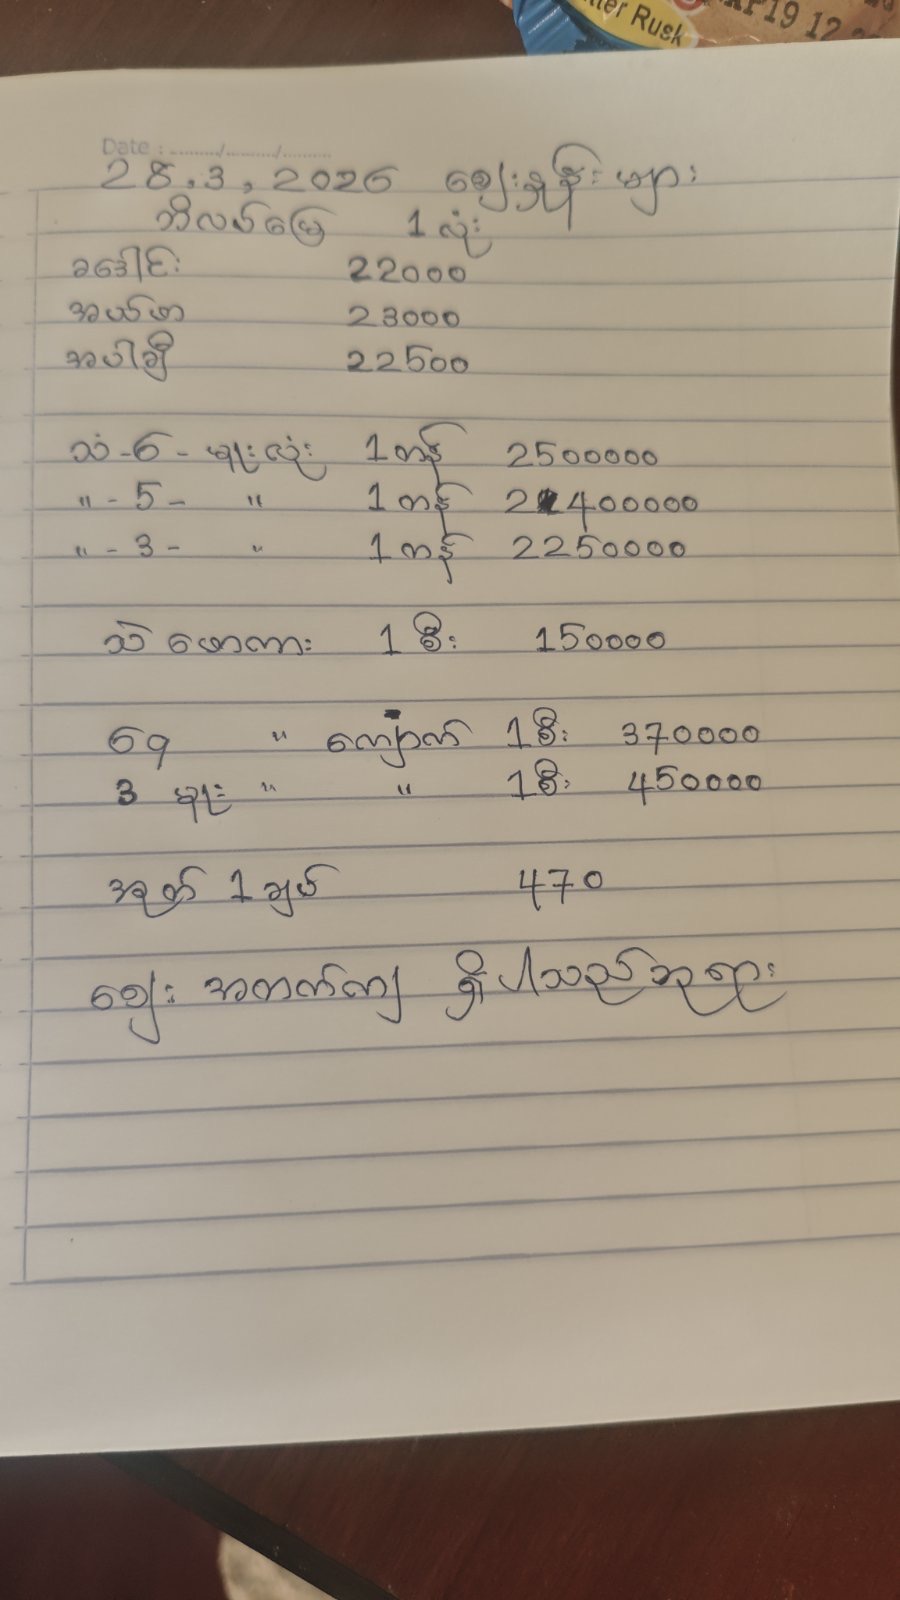 tter Rusk
XP19 12 2
Date : ......../......../........
28.3.2026 ဈေးနှုန်းများ
ဘိလပ်မြေ 1 လုံး
ခဒေါင်း 22000
အယ်ဖာ 23000
အပါချီ 22500
သံ-6-မူးလုံး 1 တန် 2500000
〃 - 5 - 〃 1 တန် 2400000
〃 - 3 - 〃 1 တန် 2250000
သဲ ဖောကား 1 စီး 150000
69 〃 ကျောက် 1 စီး 370000
3 မူး 〃 〃 1 စီး 450000
အုတ် 1 ချပ် 470
ဈေး အတက်ကျ ရှိပါသည်ဘုရား